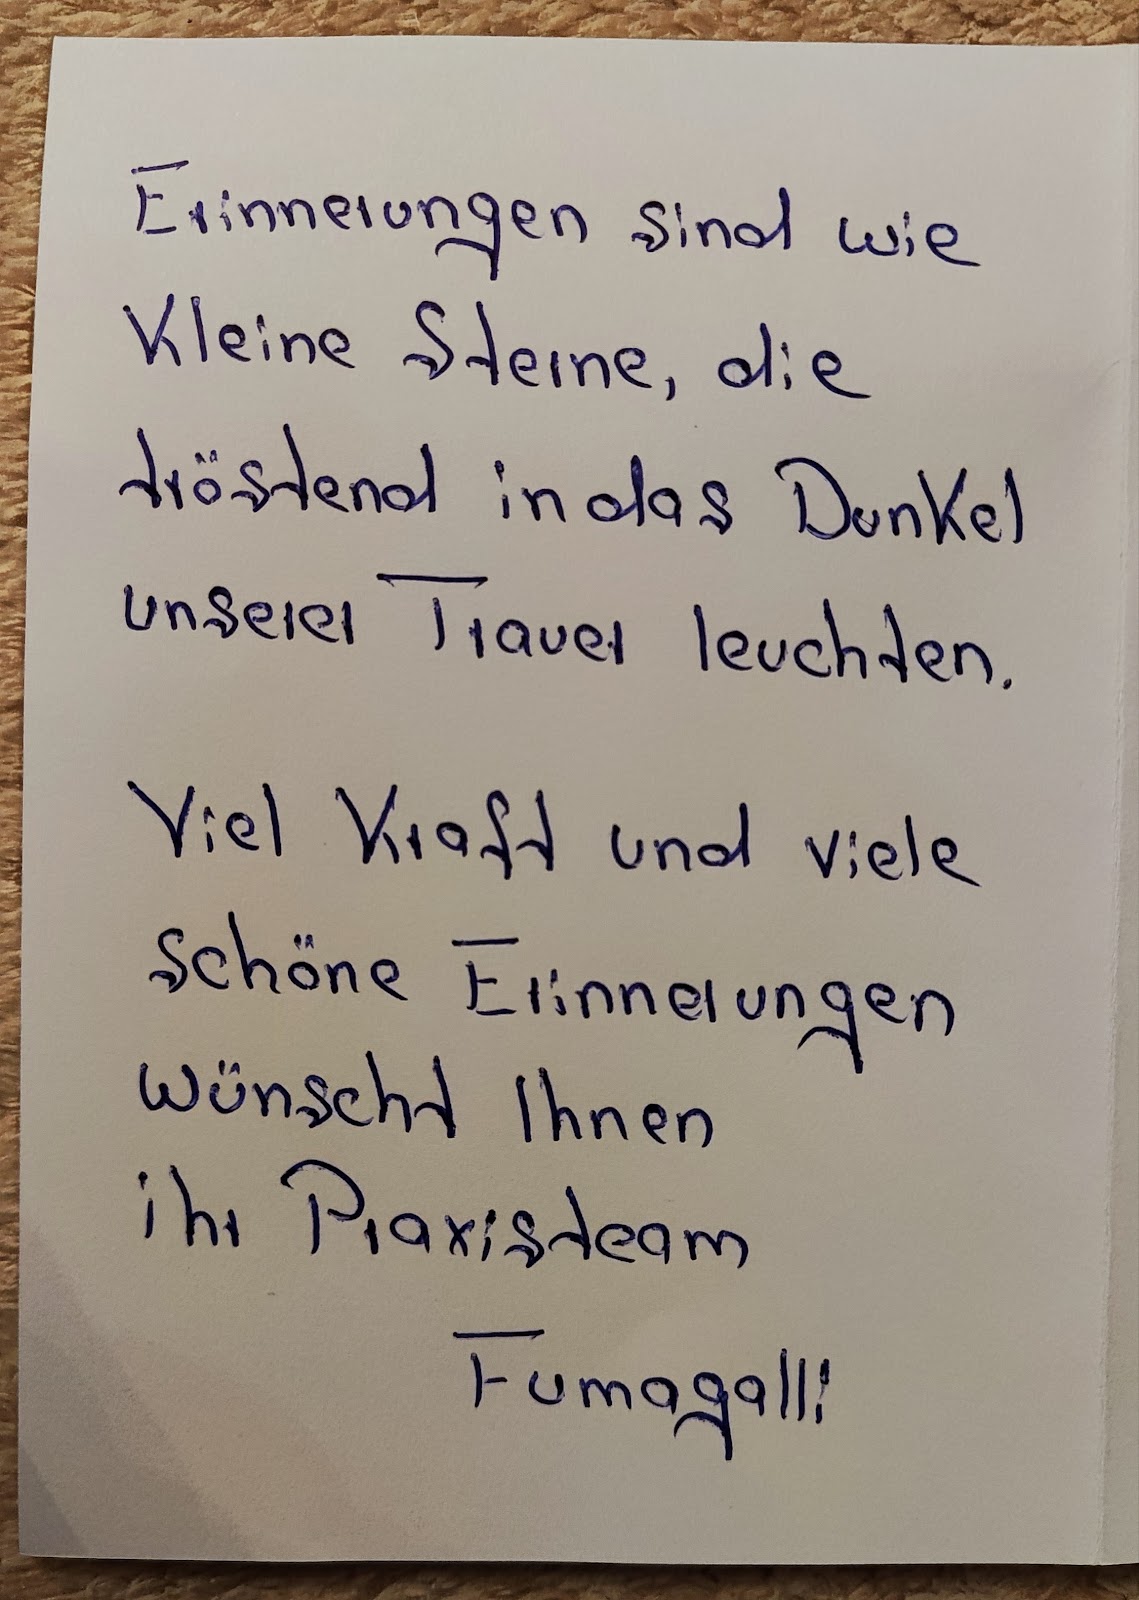 Erinnerungen sind wie
kleine Sterne, die
tröstend in das Dunkel
unserer Trauer leuchten.
Viel Kraft und viele
schöne Erinnerungen
wünscht Ihnen
ihr Praxisteam
Fumagalli